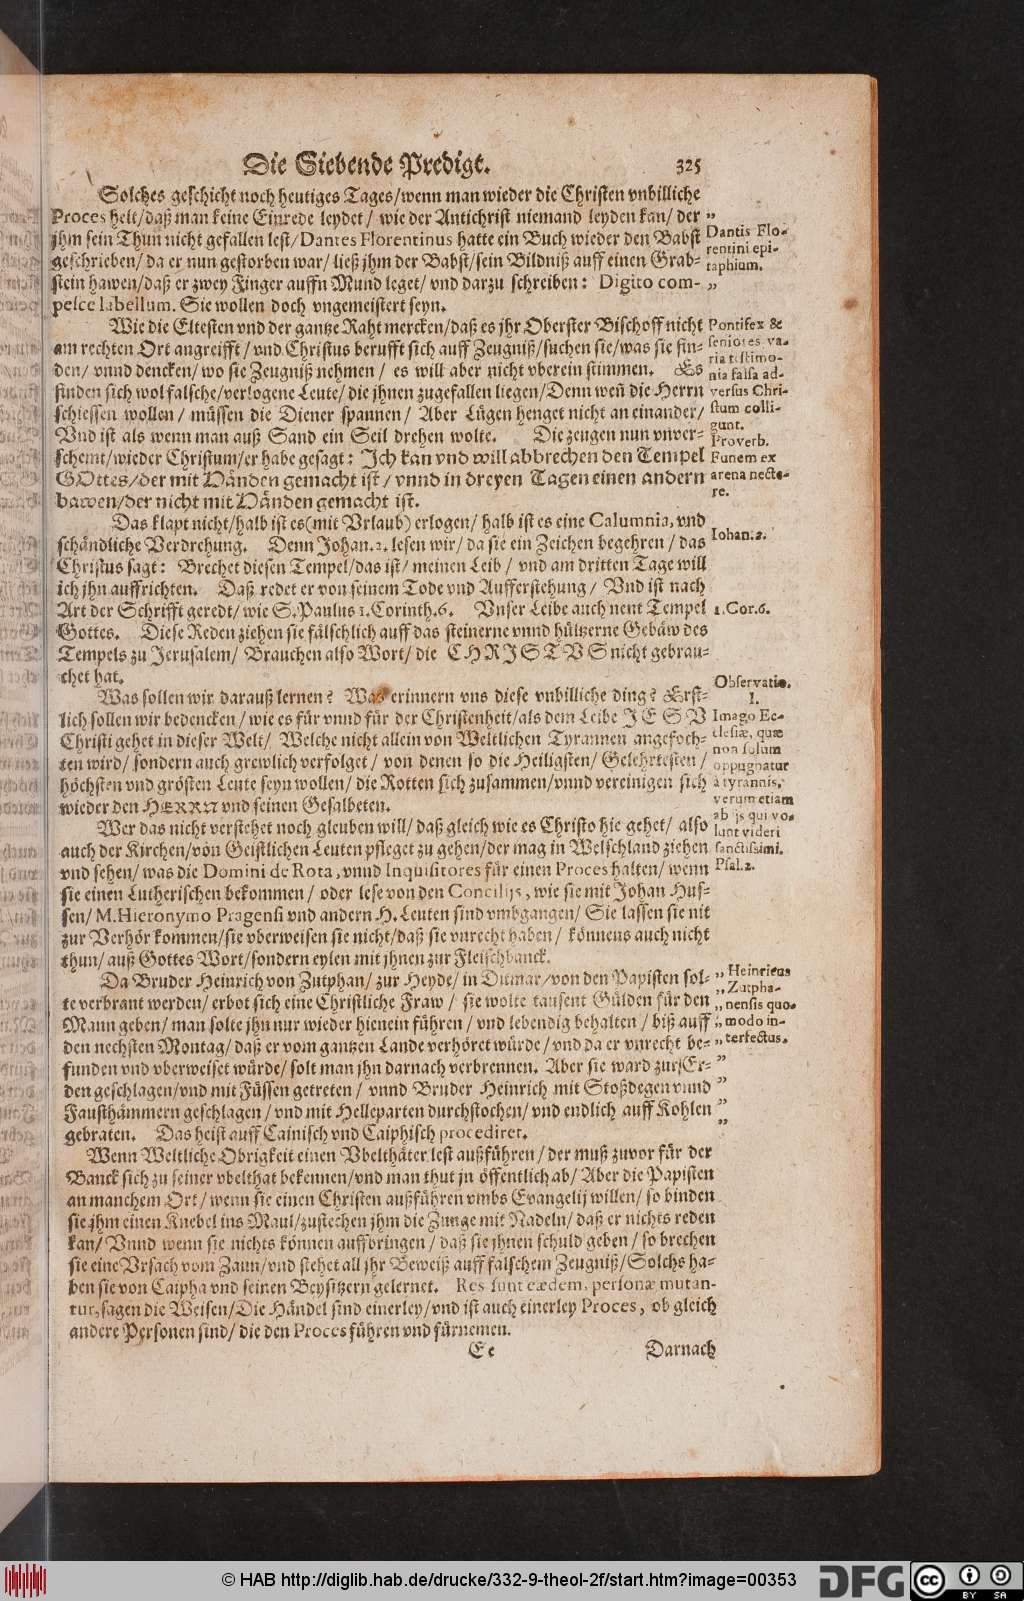 Die Siebende Predigt. 325
Solches geschicht noch heutiges Tages/wenn man wieder die Christen vnbilliche
Proces helt/daß man keine Einrede leydet/ wie der Antichrist niemand leyden kan/ der
jhm sein Thun nicht gefallen lest/Dantes Florentinus hatte ein Buch wieder den Babst
geschrieben/ da er nun gestorben war/ ließ jhm der Babst/sein Bildniß auff einen Grab-
stein hawen/daß er zwey Finger auffn Mund leget/ vnd darzu schreiben: Digito com-
pesce labellum. Sie wollen doch vngemeistert seyn.
Wie die Eltesten vnd der gantze Raht mercken/daß es jhr Oberster Bischoff nicht
am rechten Ort angreifft/ vnd Christus berufft sich auff Zeugniß/suchen sie/was sie fin-
den/ vnnd dencken/ wo sie Zeugniß nehmen/ es will aber nicht vberein stimmen. Es
finden sich wol falsche/verlogene Leute/ die jhnen zugefallen liegen/Denn weñ die Herrn
schiessen wollen/ müssen die Diener spannen/ Aber Lügen henget nicht an einander/
Vnd ist als wenn man auß Sand ein Seil drehen wolte. Die zeugen nun vnver-
schemt/wieder Christum/er habe gesagt: Ich kan vnd will abbrechen den Tempel
GOttes/der mit Händen gemacht ist/ vnnd in dreyen Tagen einen andern
bawen/der nicht mit Händen gemacht ist.
Das klapt nicht/halb ist es(mit Vrlaub) erlogen/ halb ist es eine Calumnia, vnd
schändliche Verdrehung. Denn Johan.2. lesen wir/ da sie ein Zeichen begehren/ das
Christus sagt: Brechet diesen Tempel/das ist/ meinen Leib/ vnd am dritten Tage will
ich jhn auffrichten. Daß redet er von seinem Tode vnd Aufferstehung/ Vnd ist nach
Art der Schrifft geredt/ wie S. Paulus 1. Corinth. 6. Vnser Leibe auch nent Tempel
Gottes. Diese Reden ziehen sie fälschlich auff das steinerne vnnd hültzerne Gebäw des
Tempels zu Jerusalem/ Brauchen also Wort/ die CHRISTVS nicht gebrau-
chet hat.
Was sollen wir darauß lernen? Was erinnern vns diese vnbilliche ding? Erst-
lich sollen wir bedencken/ wie es für vnnd für der Christenheit/als dem Leibe JESV
Christi gehet in dieser Welt/ Welche nicht allein von Weltlichen Tyrannen angefoch-
ten wird/ sondern auch grewlich verfolget/ von denen so die Heiligsten/ Gelehrtesten/
höchsten vnd grösten Leute seyn wollen/ die Rotten sich zusammen/vnnd vereinigen sich
wieder den HERRN vnd seinen Gesalbeten.
Wer das nicht verstehet noch gleuben will/ daß gleich wie es Christo hie gehet/ also
auch der Kirchen/von Geistlichen Leuten pfleget zu gehen/der mag in Welschland ziehen
vnd sehen/ was die Domini de Rota, vnnd Inquisitores für einen Proces halten/ wenn
sie einen Lutherischen bekommen/ oder lese von den Concilijs, wie sie mit Johan Hus-
sen/ M. Hieronymo Pragensi vnd andern H. Leuten sind vmbgangen/ Sie lassen sie nit
zur Verhör kommen/sie vberweisen sie nicht/daß sie vnrecht haben/ könnens auch nicht
thun/ auß Gottes Wort/sondern eylen mit jhnen zur Fleischbanck.
Da Bruder Heinrich von Zutphan/ zur Heyde/ in Ditmar/von den Papisten sol-
te verbrant werden/ erbot sich eine Christliche Fraw/ sie wolte tausent Gülden für den
Mann geben/ man solte jhn nur wieder hienein führen/ vnd lebendig behalten/ biß auff
den nechsten Montag/ daß er vom gantzen Lande verhöret würde/ vnd da er vnrecht be-
funden vnd vberweiset würde/ solt man jhn darnach verbrennen. Aber sie ward zur Er-
den geschlagen/vnd mit Füssen getreten/ vnnd Bruder Heinrich mit Stoßdegen vnnd
Fausthämmern geschlagen/ vnd mit Helleparten durchstochen/ vnd endlich auff Kohlen
gebraten. Das heist auff Cainisch vnd Caiphisch procediret.
Wenn Weltliche Obrigkeit einen Vbelthäter lest außführen/ der muß zuvor für der
Banck sich zu seiner vbelthat bekennen/vnd man thut jn öffentlich ab/ Aber die Papisten
an manchem Ort/ wenn sie einen Christen außführen vmbs Evangelij willen/ so binden
sie jhm einen Knebel ins Maul/zustechen jhm die Zunge mit Nadeln/ daß er nichts reden
kan/ Vnnd wenn sie nichts können auffbringen/ daß sie jhnen schuld geben/ so brechen
sie eine Vrsach vom Zaun/vnd stehet all jhr Beweiß auff falschem Zeugniß/Solchs ha-
ben sie von Caipha vnd seinen Beysitzern gelernet. Res sunt eædem, personæ mutan-
tur, sagen die Weisen/Die Händel sind einerley/vnd ist auch einerley Proces, ob gleich
andere Personen sind/ die den Proces führen vnd fürnemen.
Ee Darnach
Dantis Flo-
rentini epi-
taphium.
Pontifex &
seniores va-
ria testimo-
nia falsa ad-
versus Chri-
stum colli-
gunt.
Proverb.
Funem ex
arena necte-
re.
Iohan. 2.
1. Cor. 6.
Observatio.
1.
Imago Ec-
clesiæ, quæ
non solum
oppugnatur
à tyrannis,
verum etiam
ab ijs qui vo-
lunt videri
sanctissimi.
Psal. 2.
Heinricus
Zutpha-
nensis quo-
modo in-
terfectus.
© HAB http://diglib.hab.de/drucke/332-9-theol-2f/start.htm?image=00353
DFG
cc BY SA